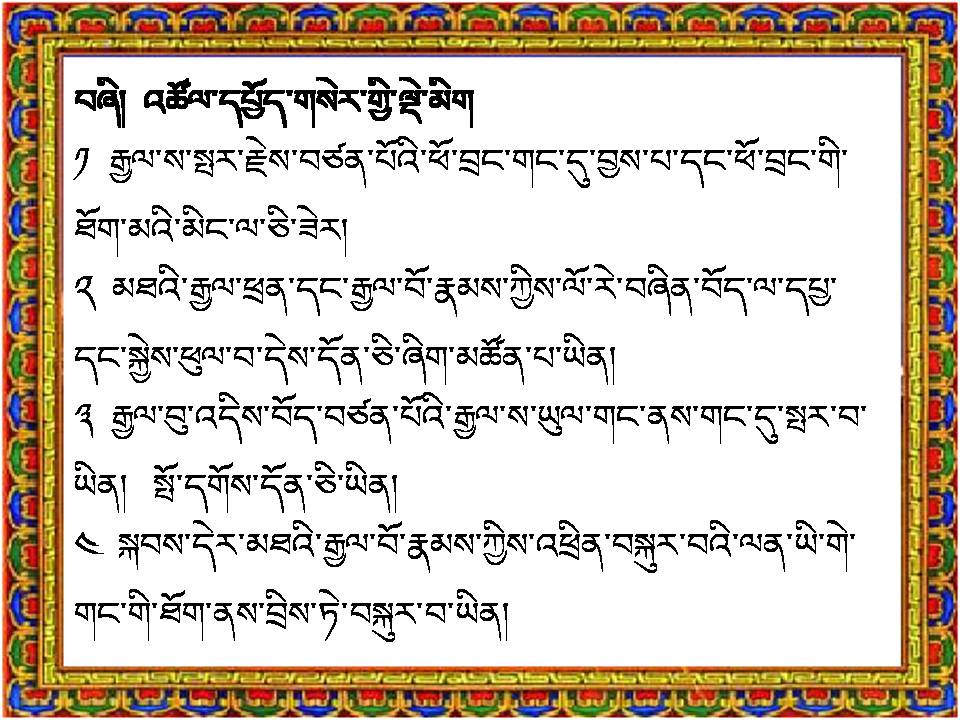 བཞི། འཚོལ་དཔྱོད་གསེར་གྱི་ལྡེ་མིག
༡ རྒྱལ་ས་སྤར་རྗེས་བཙན་པོའི་ཕོ་བྲང་གང་དུ་བྱས་པ་དང་ཕོ་བྲང་གི་
ཐོག་མའི་མིང་ལ་ཅི་ཟེར།
༢ མཐའི་རྒྱལ་ཕྲན་དང་རྒྱལ་བོ་རྣམས་ཀྱིས་ལོ་རེ་བཞིན་བོད་ལ་དཔྱ་
དང་སྐྱེས་ཕུལ་བ་དེས་དོན་ཅི་ཞིག་མཚོན་པ་ཡིན།
༣ རྒྱལ་བུ་འདིས་བོད་བཙན་པོའི་རྒྱལ་ས་ཡུལ་གང་ནས་གང་དུ་སྤར་བ་
ཡིན། སྤོ་དགོས་དོན་ཅི་ཡིན།
༤ སྐབས་དེར་མཐའི་རྒྱལ་བོ་རྣམས་ཀྱིས་འཕྲིན་བསྐུར་བའི་ལན་ཡི་གེ་
གང་གི་ཐོག་ནས་བྲིས་ཏེ་བསྐུར་བ་ཡིན།